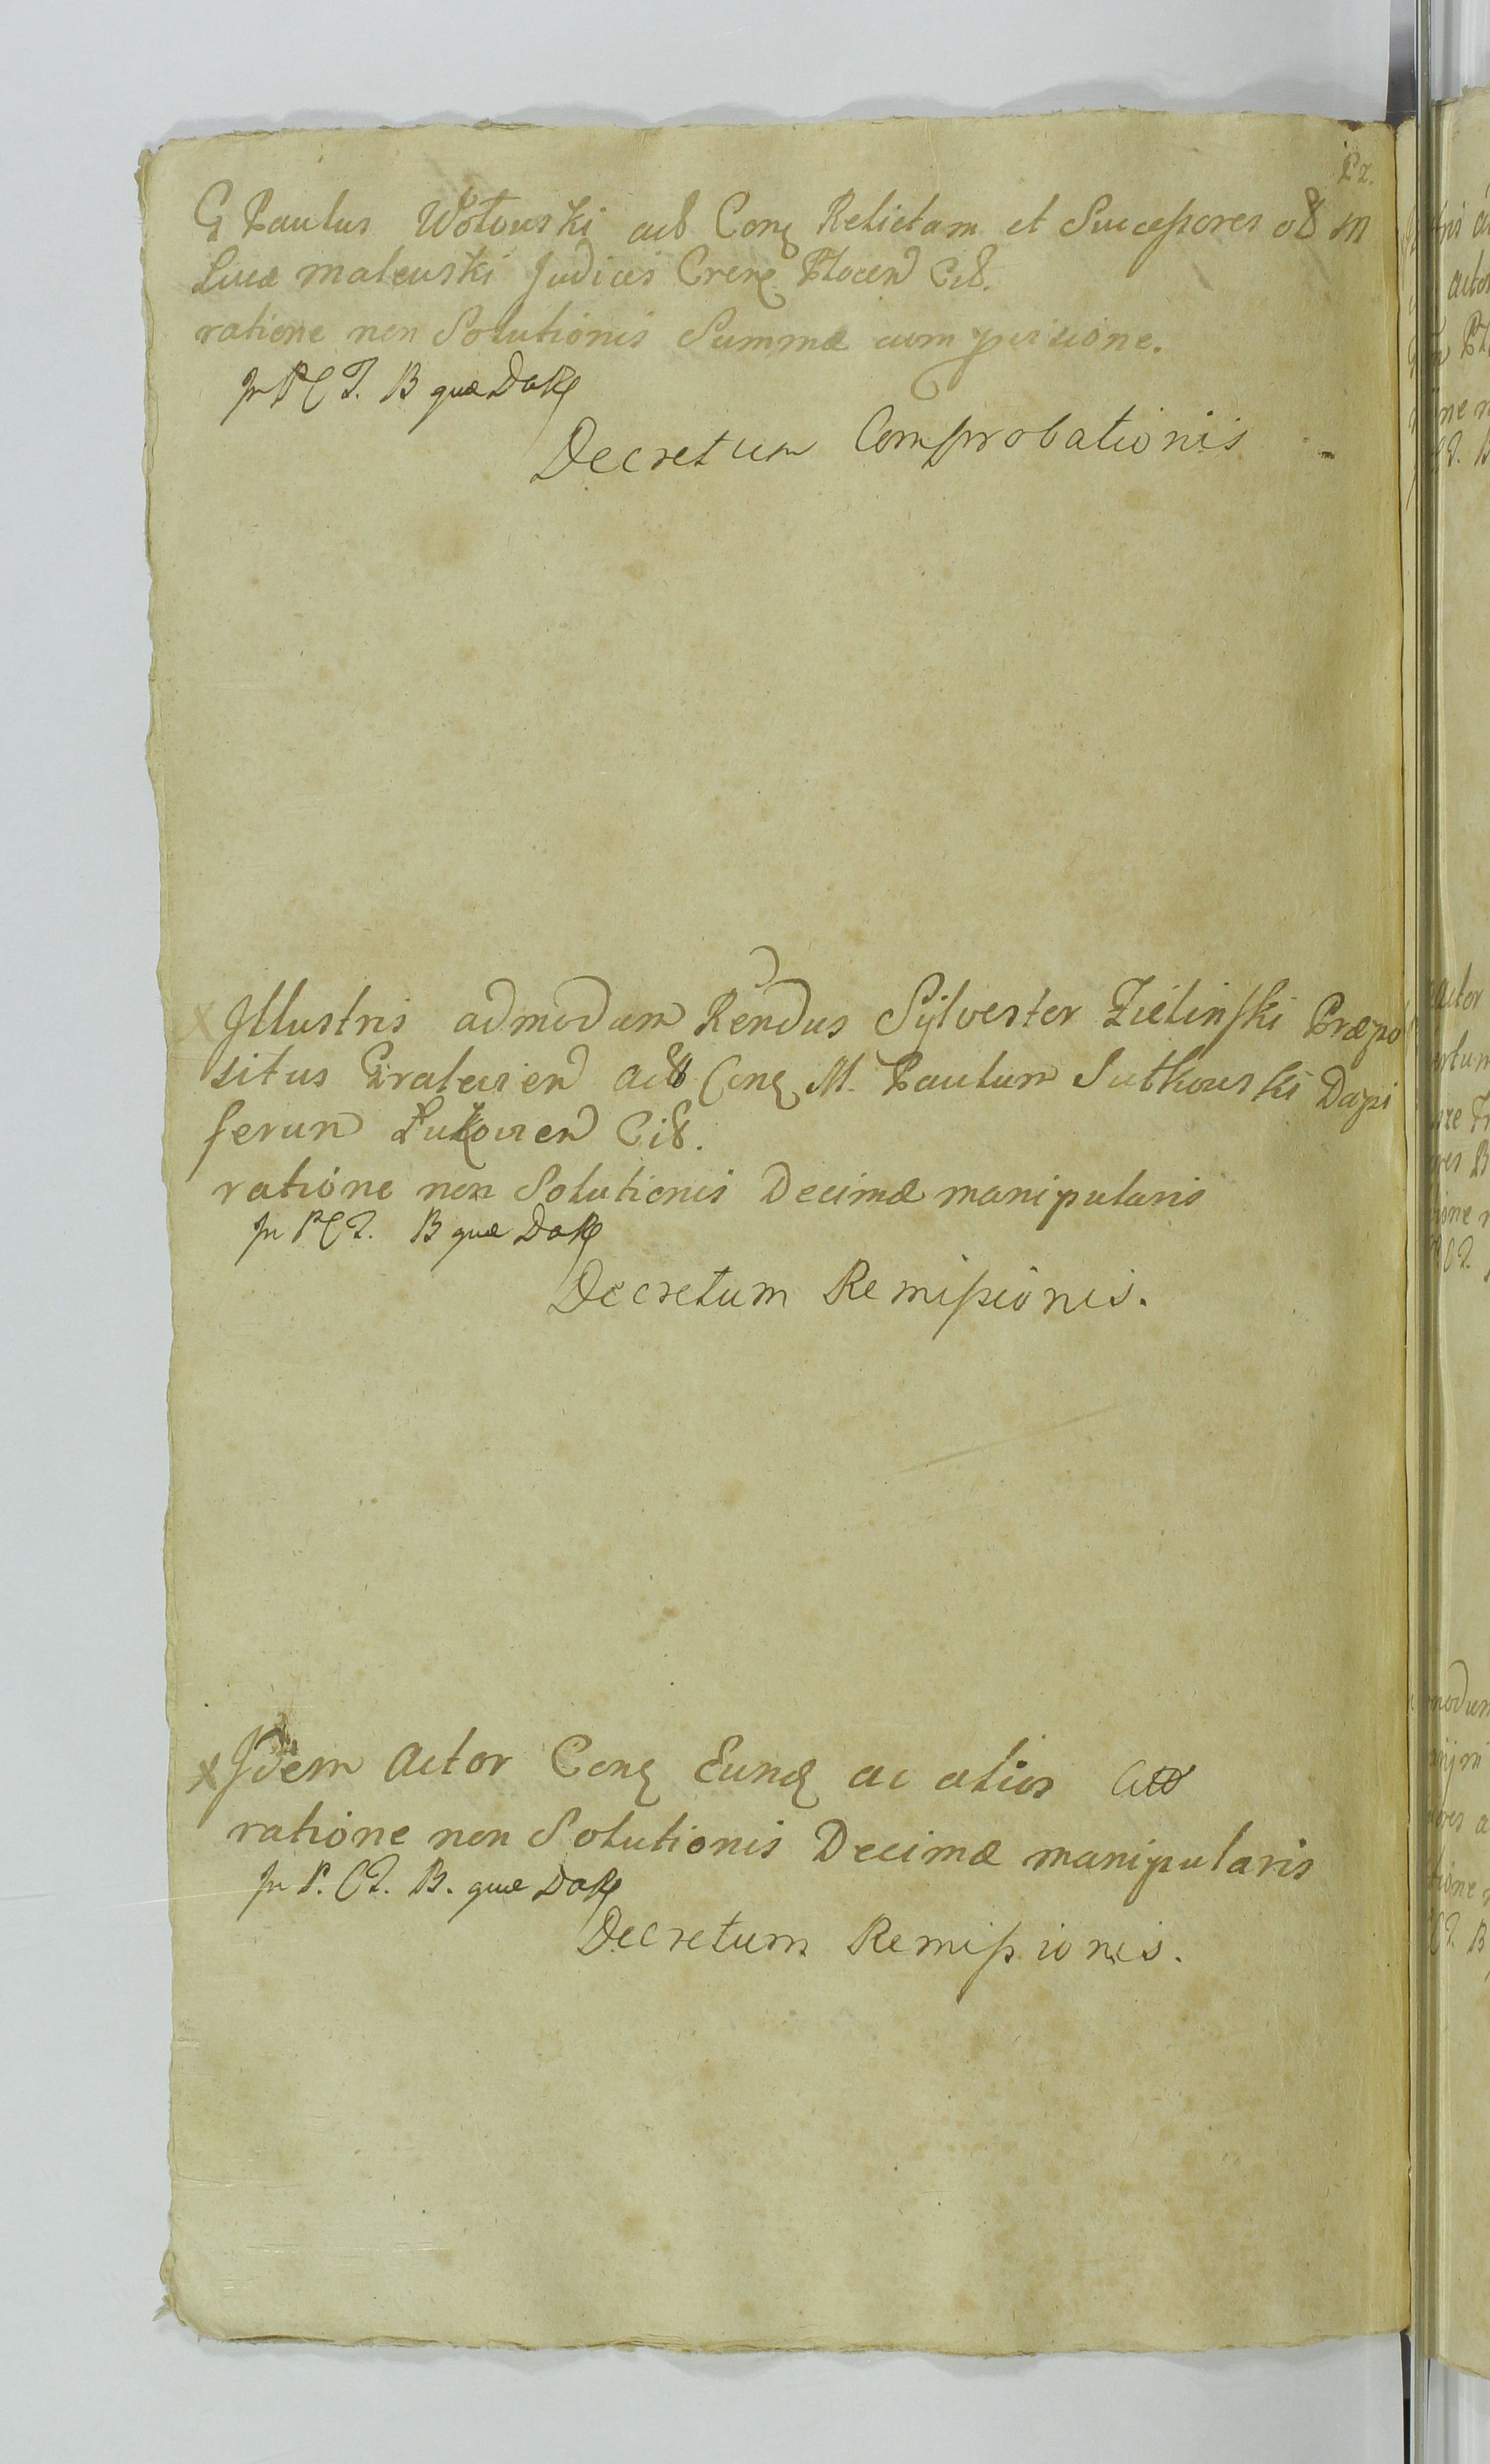 G Paulus Wołowski act Conq Relictam et Successores ol M
Lucæ Malewski Judicis Plocen Cit.
ratione non Solutionis Summæ cum
In P C T. B quæ Dak
Decretum Comprobationis
Jllustris admodum Rendus Sylvester Zielinski Præpo
situs act Conq M. Paulum Sutkowski Dapi
ferum Łukovien Cit.
ratione non Solutionis Decimæ manipularis
In P C T. B quæ Dak
Decretum Remissionis.
Jdem Actor Conq Eunq ac alios Citt
ratione non Solutionis Decimæ manipularis
In P. C T. B. quæ Dak
Decretum Remissionis.